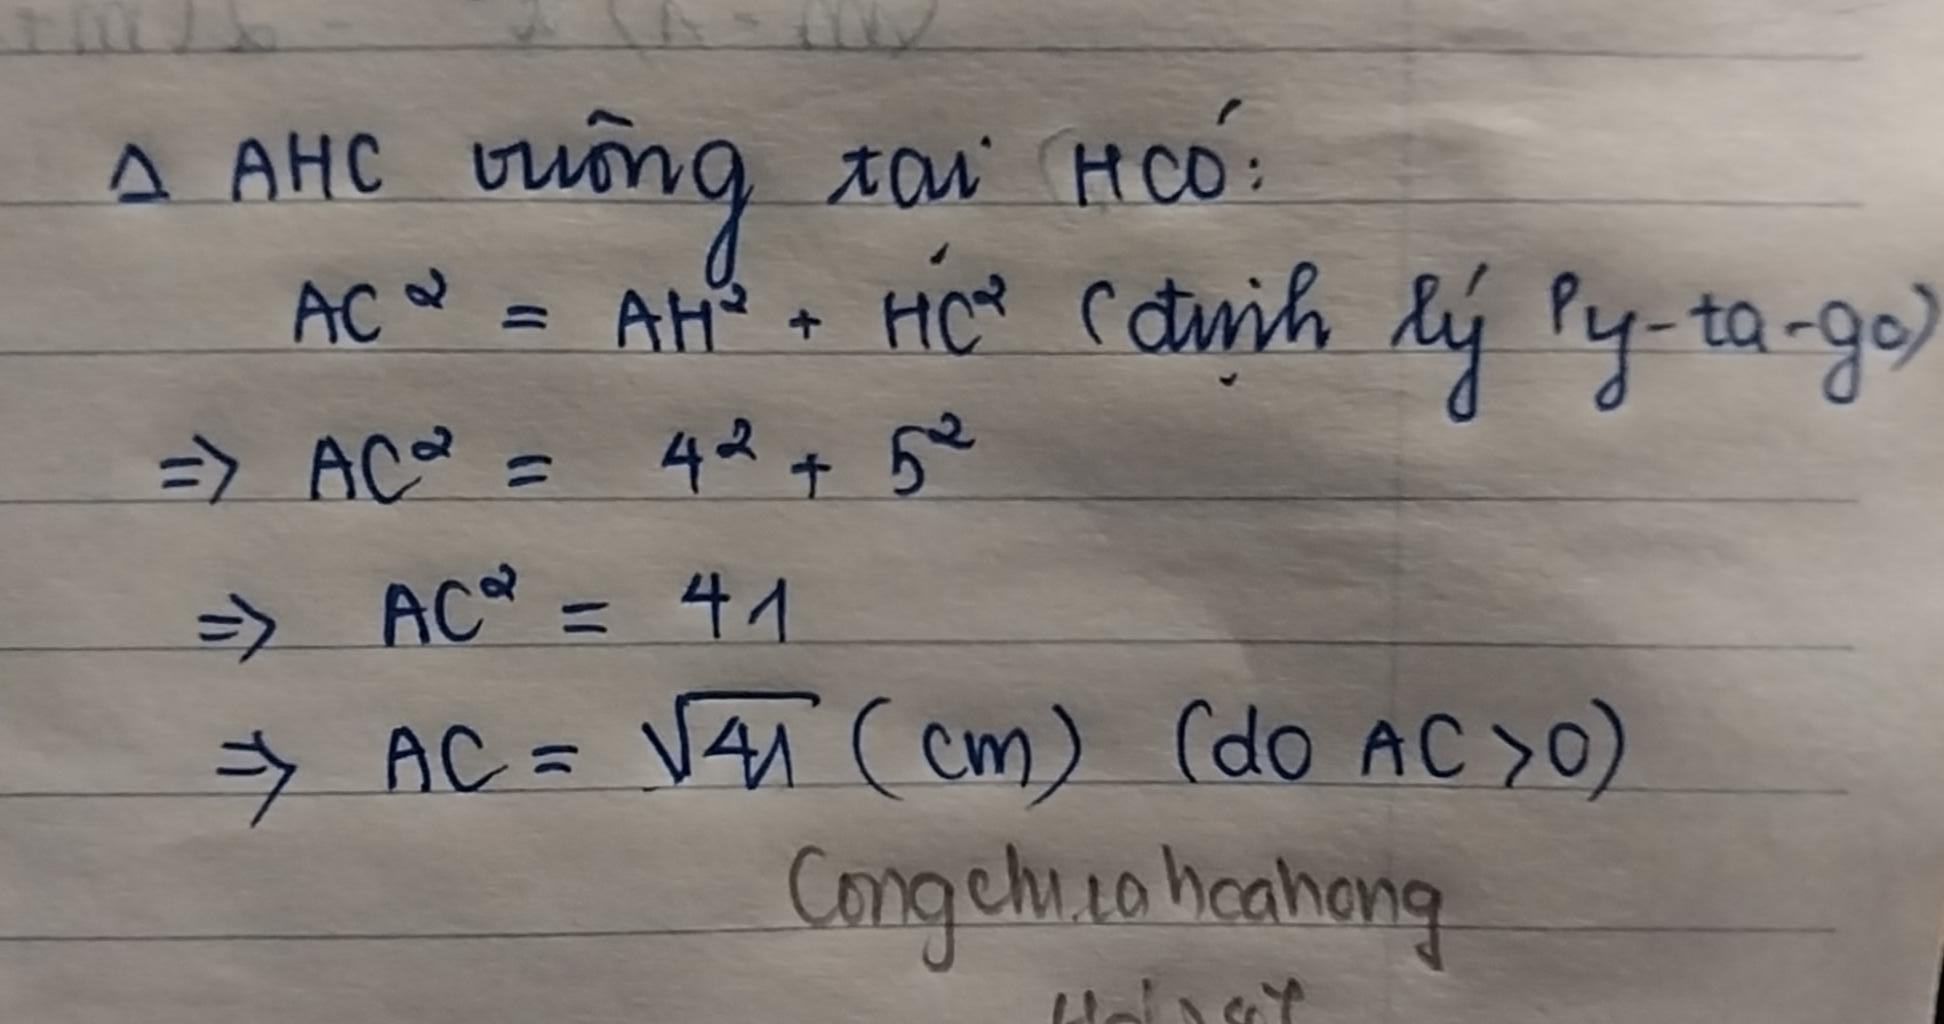 Δ AHC vuông tại H có:
AC² = AH² + HC² (định lý Py-ta-go)
=> AC² = 4² + 5²
=> AC² = 41
=> AC = √41 (cm) (do AC > 0)
Congchuahoahong